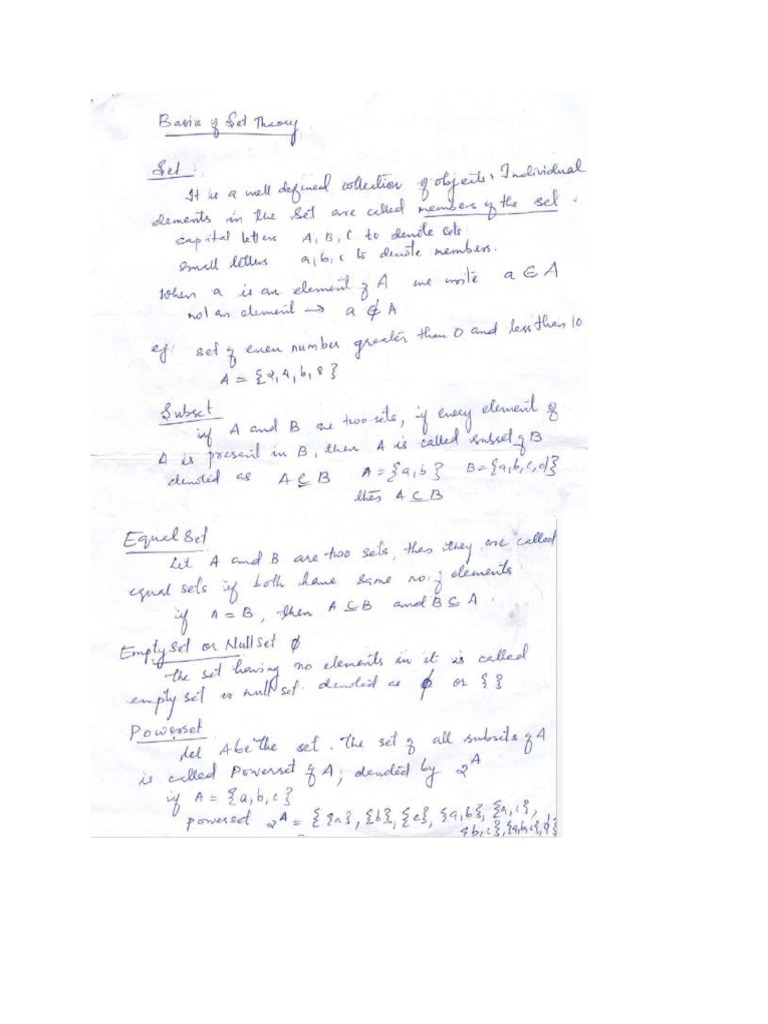 Basics of Set Theory
Set :
It is a well defined collection of objects, Individual
elements in the Set are called members of the set.
capital letters A, B, C to denote sets
small letters a, b, c to denote members.
When a is an element of A we write a ∈ A
not an element → a ∉ A
eg: set of even number greater than 0 and less than 10
A = {2, 4, 6, 8}
Subset
if A and B are two sets, if every element of
A is present in B, then A is called subset of B
denoted as A ⊆ B A = {a, b} B = {a, b, c, d}
then A ⊆ B
Equal Set
Let A and B are two sets, then they are called
equal sets if both have same no. of elements
if A = B, then A ⊆ B and B ⊆ A
Empty Set or Null Set ϕ
The set having no elements in it is called
empty set or null set. denoted as ϕ or { }
Powerset
Let A be the set. The set of all subsets of A
is called Powerset of A, denoted by 2^A
if A = {a, b, c}
powerset 2^A = { {a}, {b}, {c}, {a, b}, {a, c},
{b, c}, {a, b, c}, ϕ}